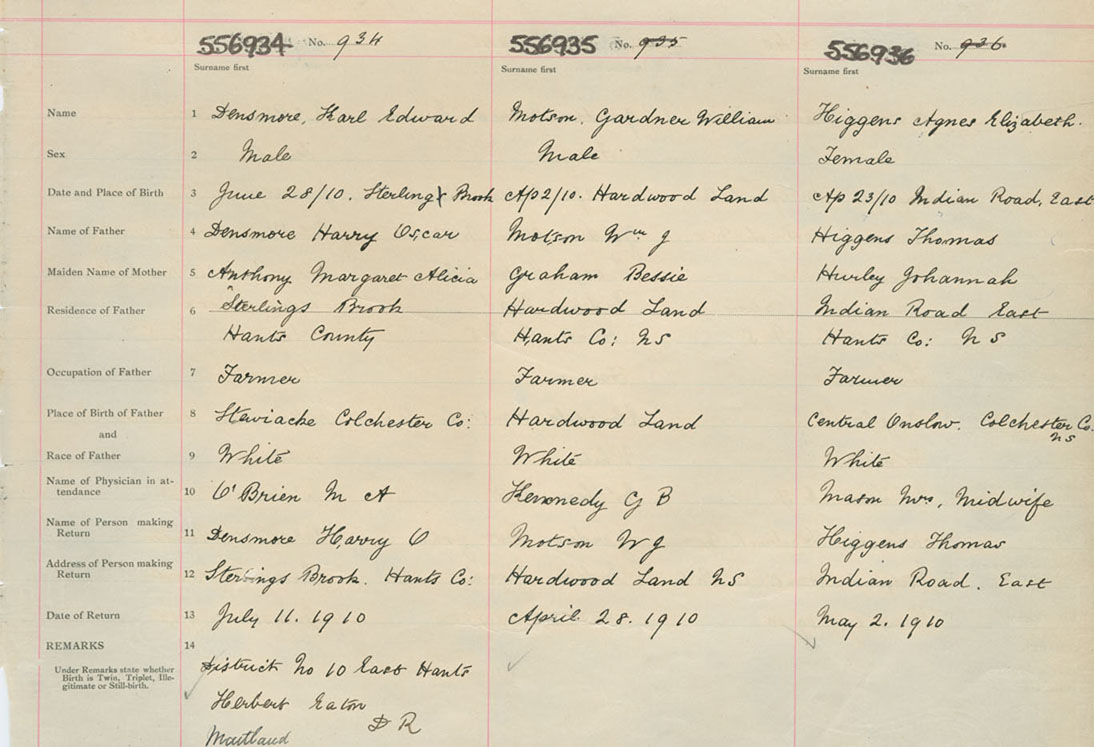 556934 No. 934 556935 No. 935 556936 No. 936
Surname first Surname first Surname first
Name 1 Densmore, Karl Edward Motson, Gardner William Higgens Agnes Elizabeth.
Sex 2 Male Male Female
Date and Place of Birth 3 June 28/10. Sterling Brook Ap 2/10. Hardwood Land Ap 23/10 Indian Road, East
Name of Father 4 Densmore Harry Oscar Motson Wm J Higgens Thomas
Maiden Name of Mother 5 Anthony Margaret Alicia Graham Bessie Hurley Johannah
Residence of Father 6 Sterlings Brook Hardwood Land Indian Road East
Hants County Hants Co: NS Hants Co: NS
Occupation of Father 7 Farmer Farmer Farmer
Place of Birth of Father 8 Stewiacke Colchester Co: Hardwood Land Central Onslow. Colchester Co.
and NS
Race of Father 9 White White White
Name of Physician in at-
tendance 10 O'Brien M A Kennedy G B Mason Mrs, Midwife
Name of Person making
Return 11 Densmore Harry O Motson W J Higgens Thomas
Address of Person making
Return 12 Sterlings Brook. Hants Co: Hardwood Land NS Indian Road. East
Date of Return 13 July 11. 1910 April 28. 1910 May 2. 1910
REMARKS 14
Under Remarks state whether
Birth is Twin, Triplet, Ille-
gitimate or Still-birth.
District No 10 East Hants
Herbert Eaton
D R
Maitland